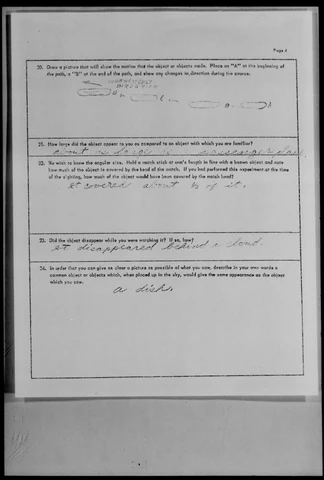 Page 4
20. Draw a picture that will show the motion that the object or objects made. Place an "A" at the beginning of
the path, a "B" at the end of the path, and show any changes in direction during the course.
DIRECTION
B
A
21. How large did the object appear to you as compared to an object with which you are familiar?
about as large a passenger plane
22. We wish to know the angular size. Hold a match stick at arm's length in line with a known object and note
how much of the object is covered by the head of the match. If you had performed this experiment at the time
of the sighting, how much of the object would have been covered by the match head?
it covered about of it.
23. Did the object disappear while you were watching it? If so, how?
it disappeared behind a
24. In order that you can give as clear a picture as possible of what you saw, describe in your own words a
common object or objects which, when placed up in the sky, would give the same appearance as the object
which you saw.
a dish.